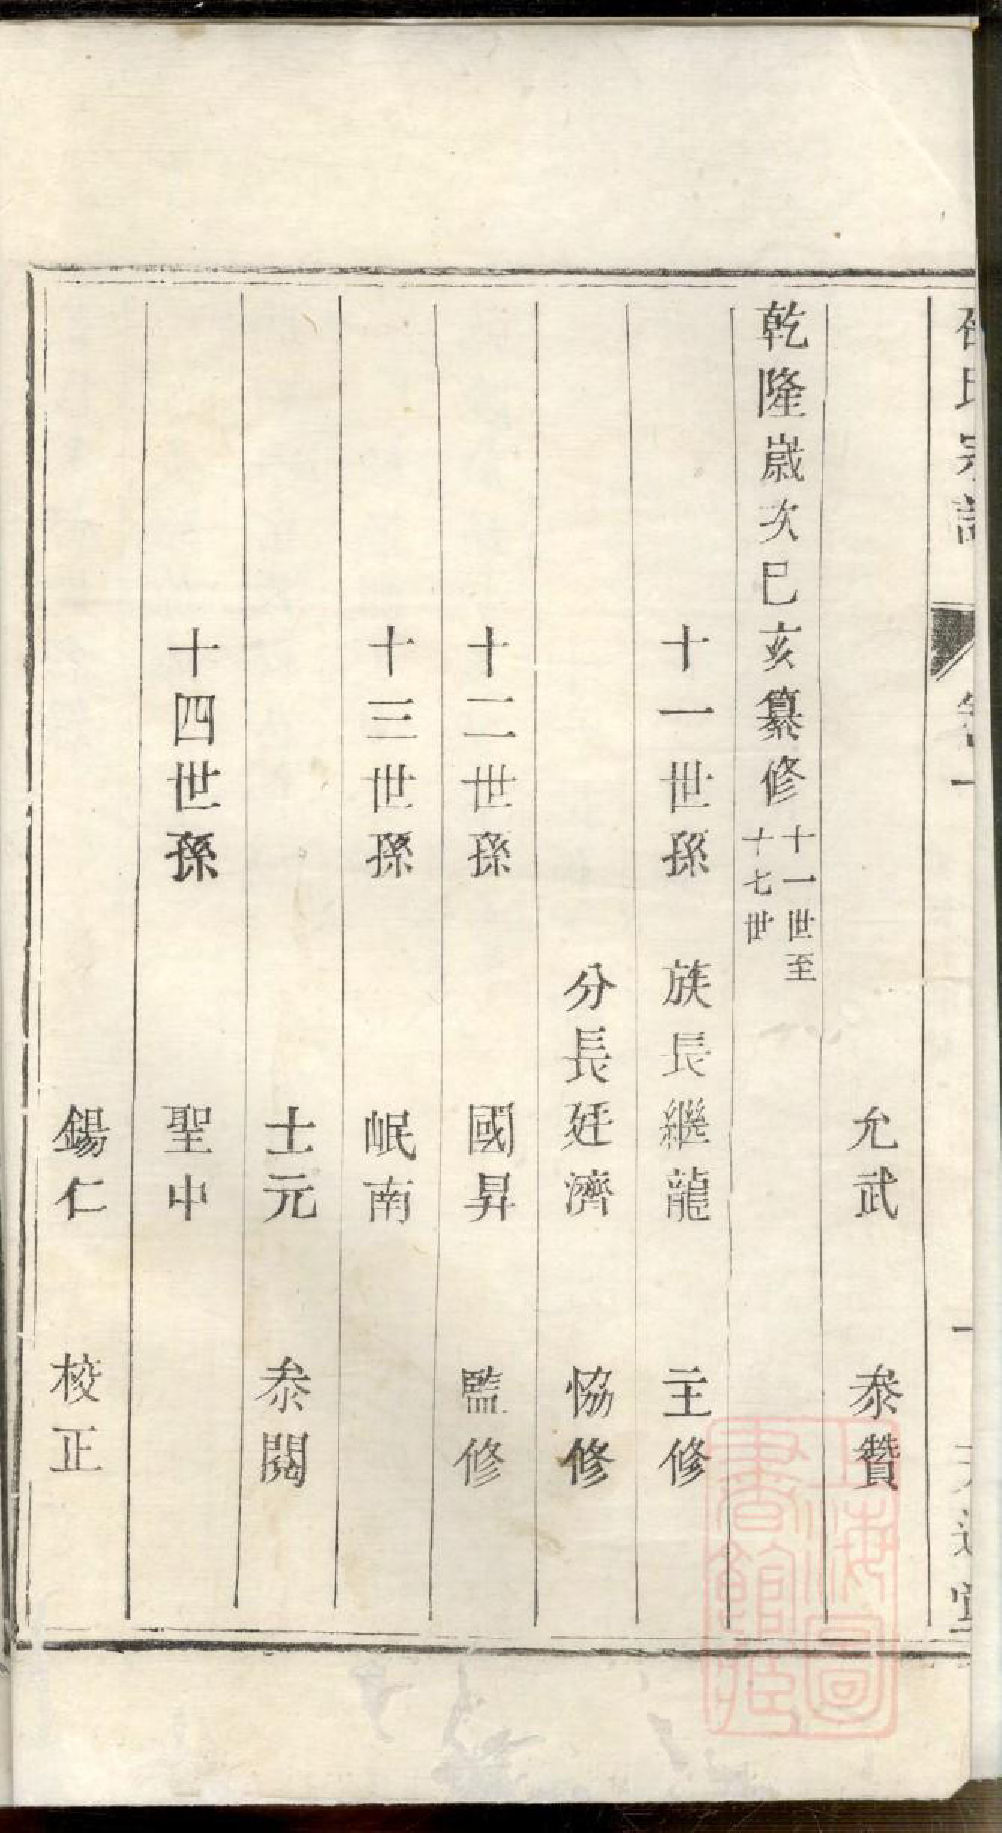 氏宗譜 卷一 一
允武 叅贊
乾隆歲次巳亥纂修 十一世至十七世
十一世孫 族長繼龍 主修
分長廷濟 恊修
十二世孫 國昇 監修
十三世孫 岷南
士元 叅閱
十四世孫 聖中
錫仁 校正
上海圖書館藏